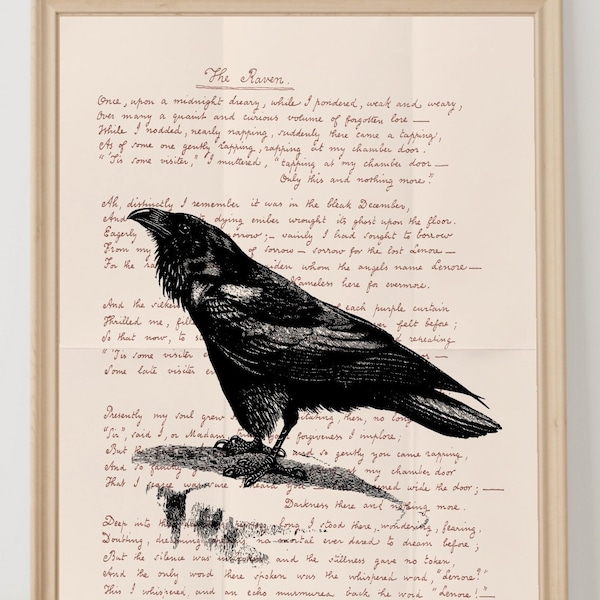 The Raven.
Once, upon a midnight dreary, while I pondered, weak and weary,
Over many a quaint and curious volume of forgotten lore —
While I nodded, nearly napping, suddenly there came a tapping,
As of some one gently rapping, rapping at my chamber door.
"'Tis some visiter," I muttered, "tapping at my chamber door —
Only this and nothing more."
Ah, distinctly I remember it was in the bleak December,
And dying ember wrought its ghost upon the floor.
Eagerly morrow; — vainly I had sought to borrow
From my of sorrow — sorrow for the lost Lenore —
For the ra iden whom the angels name Lenore —
Nameless here for evermore.
And the silken each purple curtain
Thrilled me, fill felt before;
So that now, to s repeating
"'Tis some visiter
Some late visiter e
Presently my soul grew tating then, no long
"Sir," said I, or Madam your forgiveness I implore;
But and so gently you came rapping,
And so my chamber door
That I wide the door; —
Darkness there and nothing more.
Deep into long I stood there, wondering, fearing,
Doubting, dre no mortal ever dared to dream before;
But the silence was and the stillness gave no token,
And the only word there spoken was the whispered word, "Lenore!"
This I whispered, and an echo murmured back the word "Lenore!"—